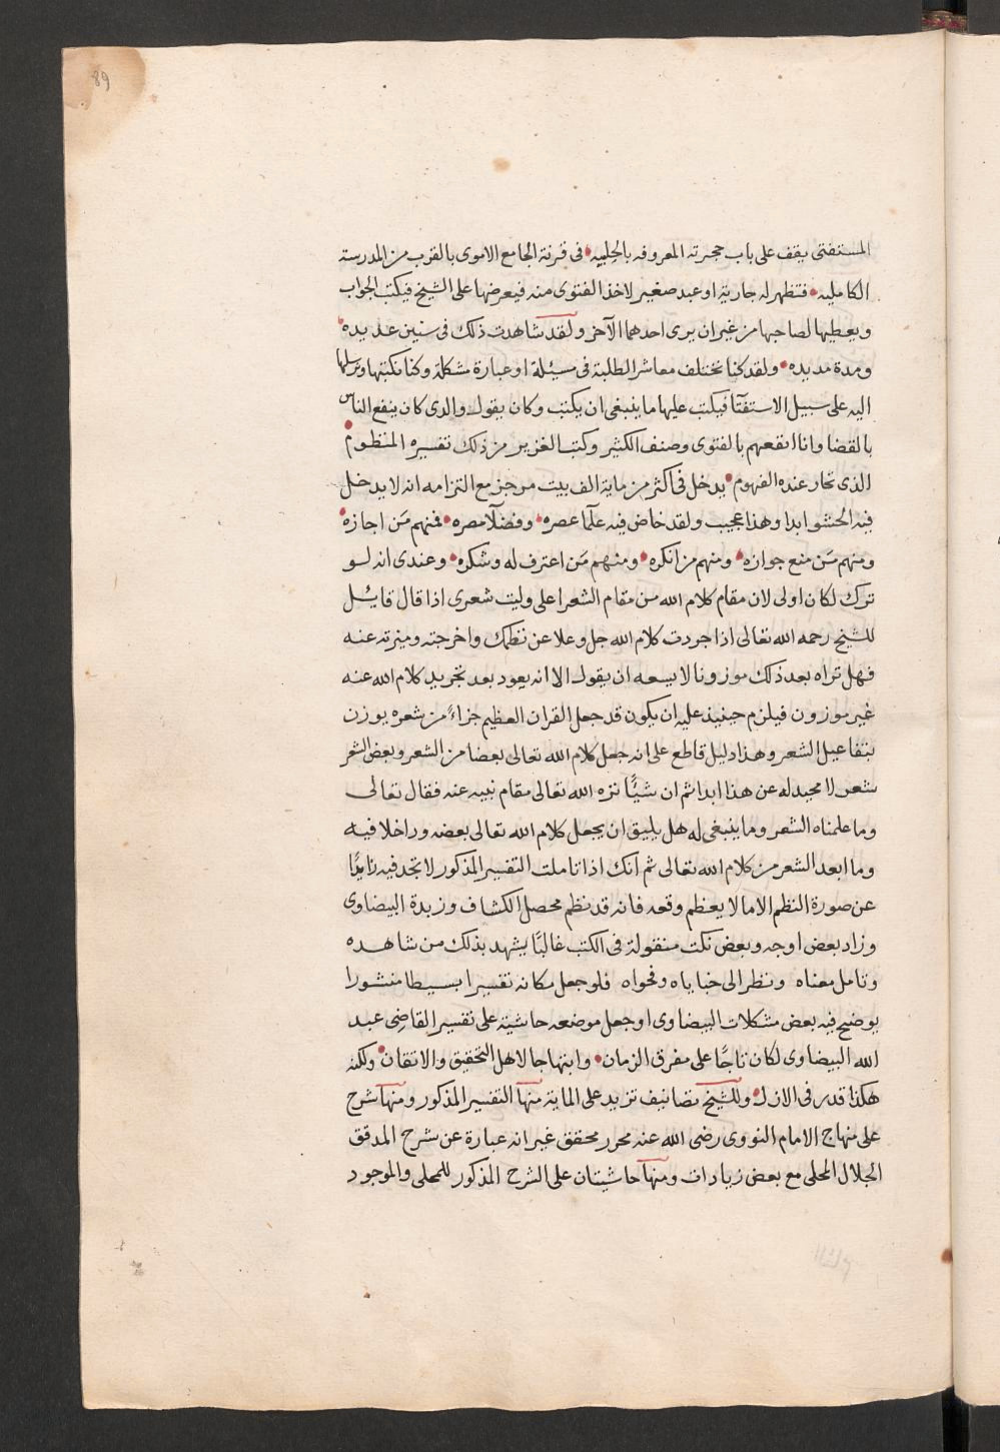 89
المستفتى يقف على باب حجرته المعروفه بالحلبيه فى قرنة الجامع الاموى بالقرب من المدرسة
الكامليه فتظهر له جارية او عبد صغير لاخذ الفتوى منه فيعرضها على الشيخ فيكتب الجواب
ويعطيها لصاحبها من غير ان يرى احدهما الآخر ولقد شاهدت ذلك فى سنين عديده
ومدة مديده ولقد كنا نختلف معاشر الطلبة فى سيئلة او عبارة مشكلة وكنا نكتبها ونرسلها
اليه على سبيل الاستفتآ فيكتب عليها ما ينبغى ان يكتب وكان يقول والدى كان ينفع الناس
بالقضا وانا انفعهم بالفتوى وصنف الكثير وكتب الغزير من ذلك تفسيره المنظوم
الذى تحار عنده الفهوم يدخل فى اكثر من ماية الف بيت مرجز مع التزامه انه لا يدخل
فيه الحشو ابدا وهذا عجيب ولقد خاض فيه علمآ عصره وفضلآ مصره فمنهم مَن اجازه
ومنهم مَن منع جوازه ومنهم من انكره ومنهم مَن اعترف له وشكره وعندى انه لو
ترك لكان اولى لان مقام كلام الله من مقام الشعر اعلى وليت شعرى اذا قال قايل
للشيخ رحمه الله تعالى اذا جردت كلام الله جل وعلا عن نظمك واخرجته وميزته عنه
فهل تراه بعد ذلك موزونا لا يسعه ان يقول الا انه يعود بعد تجريد كلام الله عنه
غير موزون فيلزم حينيذ عليه ان يكون قد جعل القران العظيم جزاءً من شعره يوزن
بتفاعيل الشعر وهذا دليل قاطع على انه جعل كلام الله تعالى بعضا من الشعر وبعض الشعر
شعر لا محيد له عن هذا ابدا ثم ان شيًا نزه الله تعالى مقام نبيه عنه فقال تعالى
وما علمناه الشعر وما ينبغى له هل يليق ان يجعل كلام الله تعالى بعضه وراخلا فيه
وما ابعد الشعر من كلام الله تعالى ثم انك اذا تاملت التفسير المذكور لا تجد فيه زايدًا
عن صورة النظم الا ما لا يعظم وقعه فانه قد نظم محصل الكشاف وزبدة البيضاوى
وزاد بعض اوجه وبعض نكت منقولة فى الكتب غالبًا يشهد بذلك من شاهده
وتامل معناه ونظر الى خباياه وفحواه فلو جعل مكانه تفسيرا بسيطا منشورا
يوضح فيه بعض مشكلات البيضاوى او جعل موضعه حاشية على تفسير القاضى عبد
الله البيضاوى لكان تاجًا على مفرق الزمان وابتهاجا لاهل التحقيق والاتقان ولكنه
هكذا قدر فى الازل وللشيخ تصانيف تزيد على الماية منها التفسير المذكور ومنها شرح
على منهاج الامام النووى رضى الله عنه محرر محقق غير انه عبارة عن شرح المدقق
الجلال المحلى مع بعض زيادات ومنها حاشيتان على الشرح المذكور للمحلى والموجود